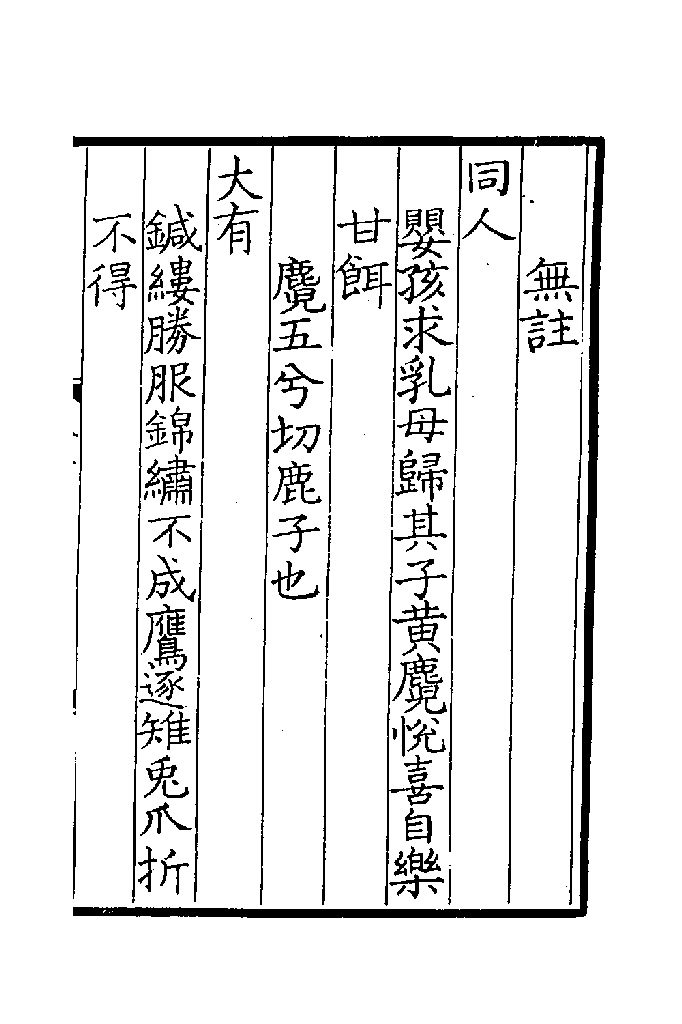 無註
同人
嬰孩求乳母歸其子黄麑悅喜自樂
甘餌
麑五兮切鹿子也
大有
鍼縷勝服錦繡不成鷹逐雉兎爪折
不得